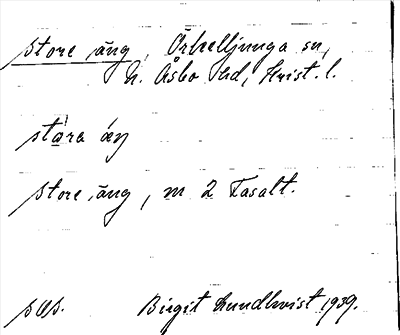 Store äng, Örkelljunga sn,
N. Åsbo hd, Krist. l.
stora äŋ
Store äng, m 2 Fasalt.
sas. Birgit Lundkvist 1939.